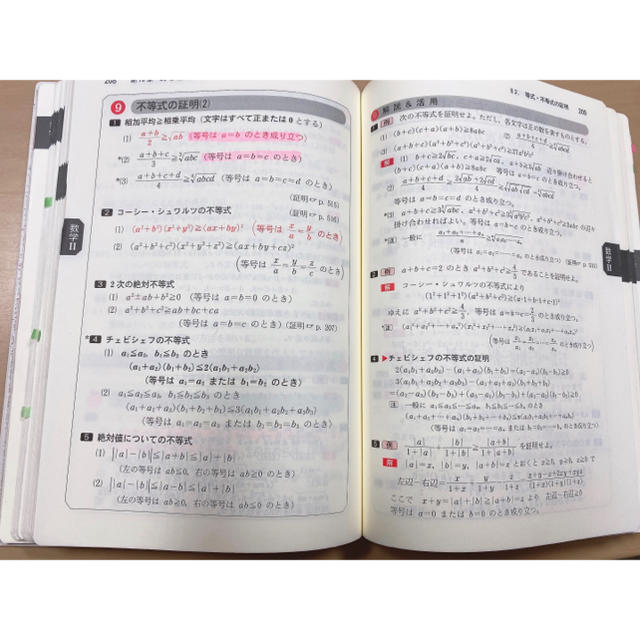 208
9 不等式の証明(2)
1 相加平均≧相乗平均 (文字はすべて正または0とする)
(1) (a+b)/2≧√ab (等号は a=b のとき成り立つ)
*(2) (a+b+c)/3≧³√abc (等号は a=b=c のとき)
*(3) (a+b+c+d)/4≧⁴√abcd (等号は a=b=c=d のとき)
(証明☞ p. 515)
2 コーシー・シュワルツの不等式 (証明☞ p. 516)
(1) (a²+b²)(x²+y²)≧(ax+by)² (等号は x/a=y/b のとき)
(2) (a²+b²+c²)(x²+y²+z²)≧(ax+by+cz)²
(等号は x/a=y/b=z/c のとき)
3 2次の絶対不等式
(1) a²±ab+b²≧0 (等号は a=b=0 のとき)
(2) a²+b²+c²≧ab+bc+ca
(等号は a=b=c のとき) (証明☞ p. 207)
*4 チェビシェフの不等式
(1) a₁≦a₂, b₁≦b₂ のとき
(a₁+a₂)(b₁+b₂)≦2(a₁b₁+a₂b₂)
(等号は a₁=a₂ または b₁=b₂ のとき)
(2) a₁≦a₂≦a₃, b₁≦b₂≦b₃ のとき
(a₁+a₂+a₃)(b₁+b₂+b₃)≦3(a₁b₁+a₂b₂+a₃b₃)
(等号は a₁=a₂=a₃ または b₁=b₂=b₃ のとき)
5 絶対値についての不等式
(1) ||a|-|b||≦|a+b|≦|a|+|b|
(左の等号は ab≦0, 右の等号は ab≧0 のとき)
(2) ||a|-|b||≦|a-b|≦|a|+|b|
(左の等号は ab≧0, 右の等号は ab≦0 のとき)
数学II
§2. 等式・不等式の証明 209
解説&活用
1 例 次の不等式を証明せよ。ただし, 各文字は正の数を表すものとする。
(1) (b+c)(c+a)(a+b)≧8abc
(3) (a+b+c)(a²+b²+c²)(a³+b³+c³)≧27a²b²c²
解 (1) b+c≧2√bc, c+a≧2√ca, a+b≧2√ab の辺々掛け合わせると
(b+c)(c+a)(a+b)≧8abc 等号は a=b=c のとき成り立つ。
掛け合わせればよい。等号は a=b=c のとき成り立つ。
注 一般に
2 例 a+b+c=2 のとき a²+b²+c²≧4/3 であることを証明せよ。
解 コーシー・シュワルツの不等式により
(1²+1²+1²)(a²+b²+c²)≧(1·a+1·b+1·c)²
ゆえに a²+b²+c²≧4/3, 等号は a=b=c=2/3 のとき成り立つ。
4 ▶チェビシェフの不等式の証明
2(a₁b₁+a₂b₂)-(a₁+a₂)(b₁+b₂)=(a₁-a₂)(b₁-b₂)≧0
3(a₁b₁+a₂b₂+a₃b₃)-(a₁+a₂+a₃)(b₁+b₂+b₃)
5 例 |a|/(1+|a|)+|b|/(1+|b|)≧|a+b|/(1+|a+b|) を証明せよ。
解 |a|=x, |b|=y, |a+b|=z とおくと x≧0, y≧0, z≧0 で
ここで x+y=|a|+|b|≧|a+b|=z より 左辺-右辺≧0
等号は a=0 または b=0 のとき成り立つ。
数学II